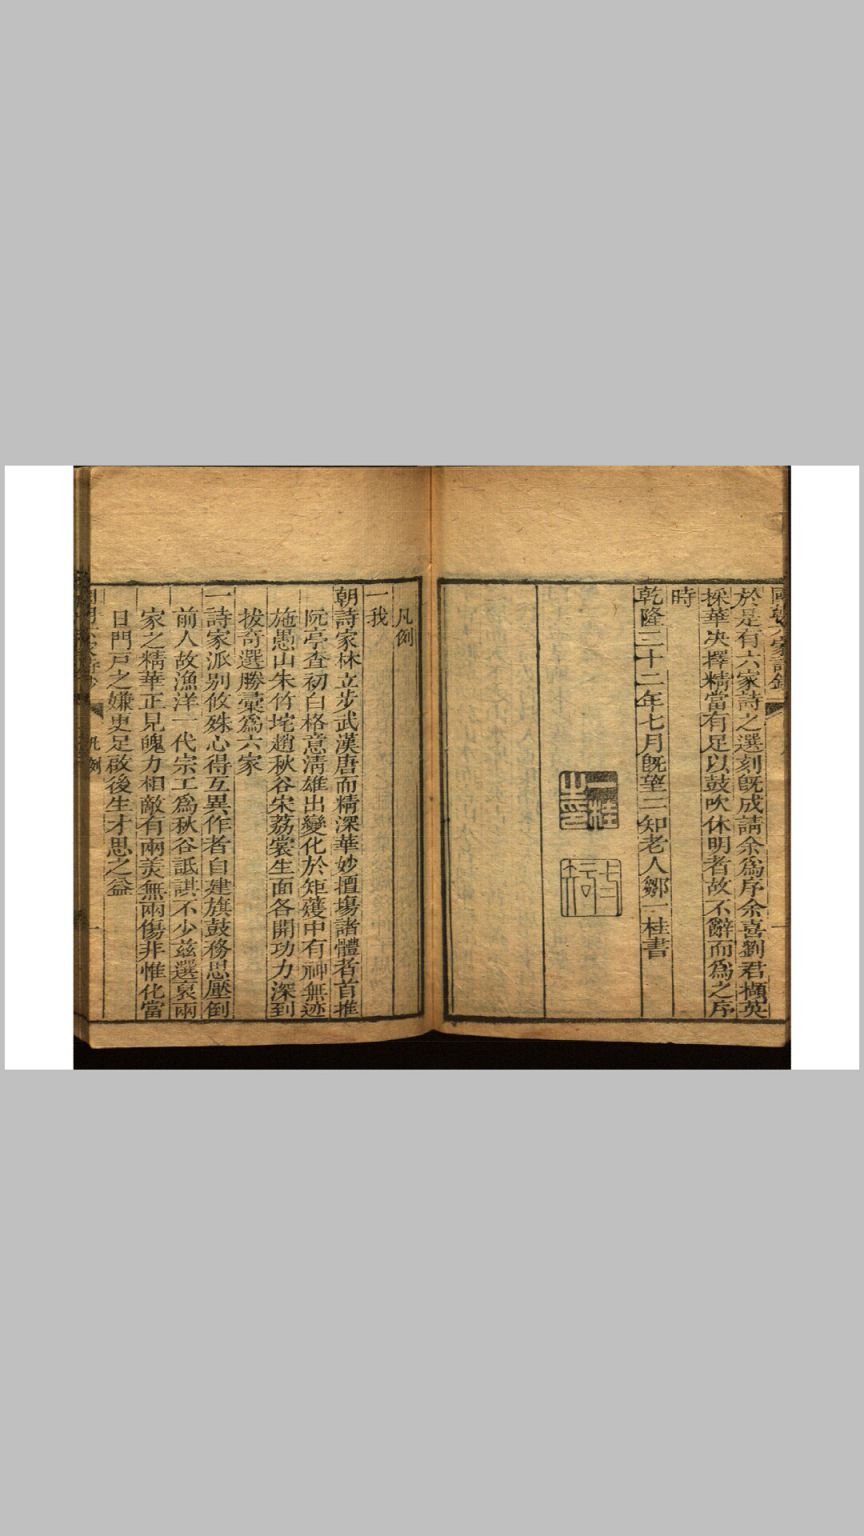 國朝六家詩鈔
於是有六家詩之選刻旣成請余爲序余喜劉君擷英
採華决擇精當有足以鼓吹休明者故不辭而爲之序
時
乾隆三十二年七月旣望二知老人鄒一桂書
一桂之印
凡例
一我
朝詩家林立步武漢唐而精深華妙擅塲諸體者首推
阮亭查初白格意淸雄出變化於矩矱中有神無迹
施愚山朱竹垞趙秋谷宋荔裳生面各開功力深到
拔奇選勝彙爲六家
一詩家派别攸殊心得互異作者自建旗鼓務思壓倒
前人故漁洋一代宗工爲秋谷詆諆不少兹選裒兩
家之精華正見魄力相敵有兩美無兩傷非惟化當
日門戸之嫌更足啟後生才思之益
凡例
一